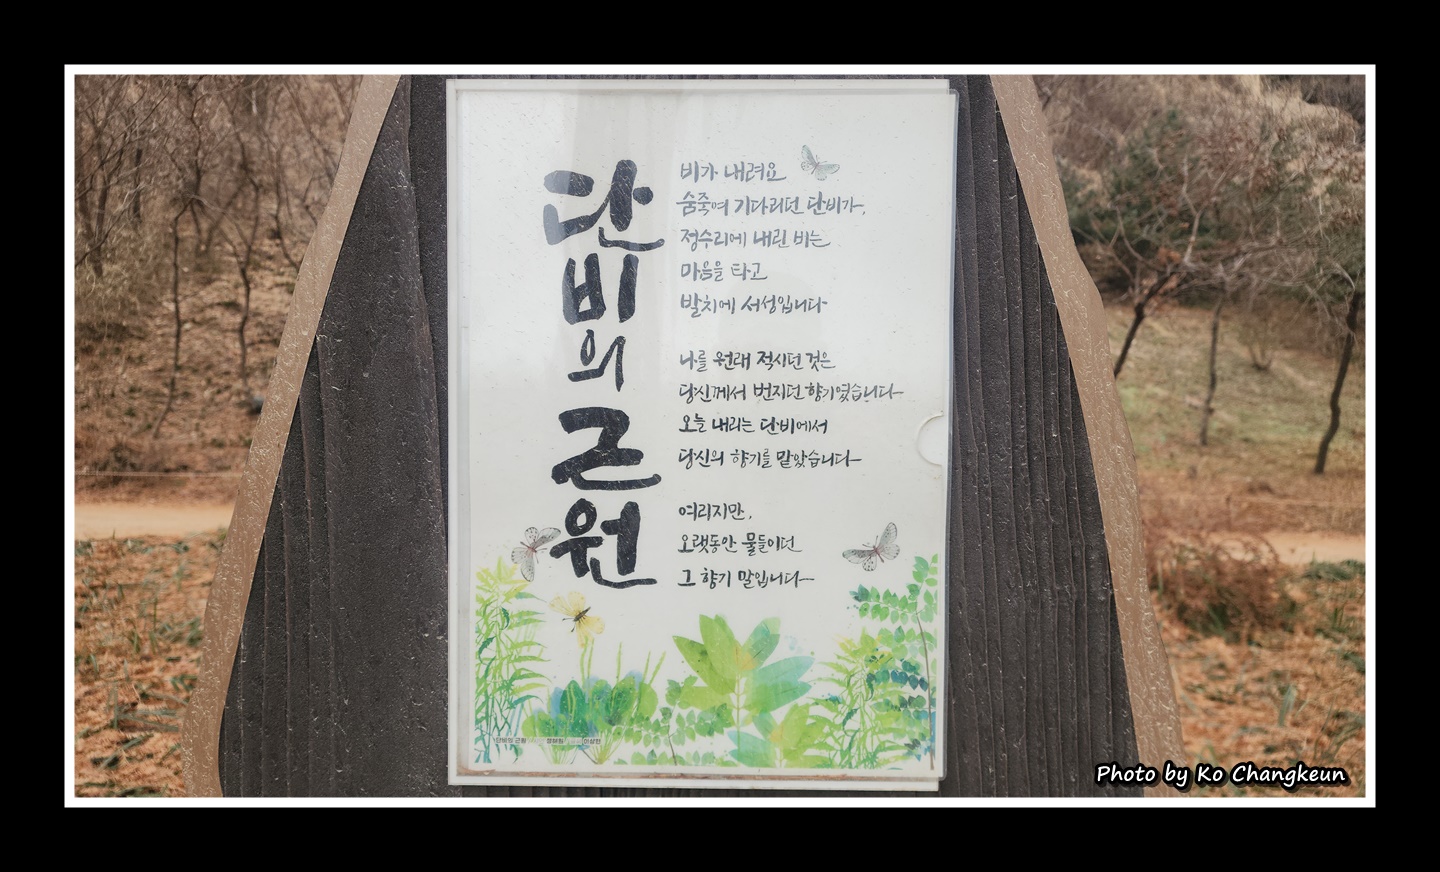 단비의 근원
비가 내려요
숨죽여 기다리던 단비가,
정수리에 내린 비는
마음을 타고
발치에 서성입니다
나를 원래 적시던 것은
당신께서 번지던 향기였습니다
오늘 내리는 단비에서
당신의 향기를 맡았습니다
여리지만,
오랫동안 물들이던
그 향기 말입니다
단비의 근원
Photo by Ko Changkeun